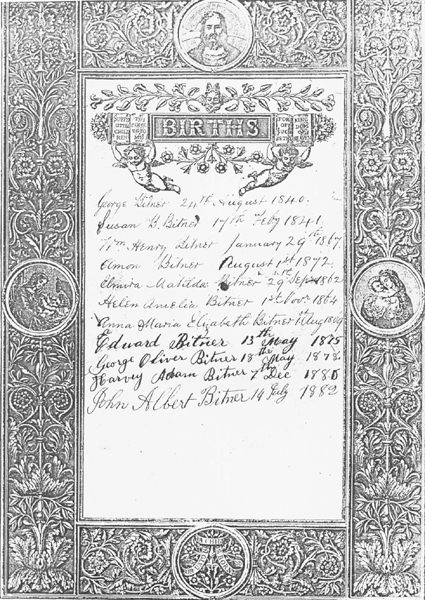 SUFFER LITTLE CHILDREN
BIRTHS
FOR OF SUCH
George Bitner 24th August 1840.
Susan B. Bitner 17th of Feby 1841.
Wm Henry Bitner January 29th 1867.
Amon Bitner August 1st 1872.
Elmira Matilda Bitner 29th Sept 1862
Helen Amelia Bitner 1st Nov. 1864
Anna Maria Elizabeth Bitner Aug 1869
Edward Bitner 13th May 1875
George Oliver Bitner 18th May 1878.
Harvey Adam Bitner 7th Dec 1880
John Albert Bitner 14 July 1882